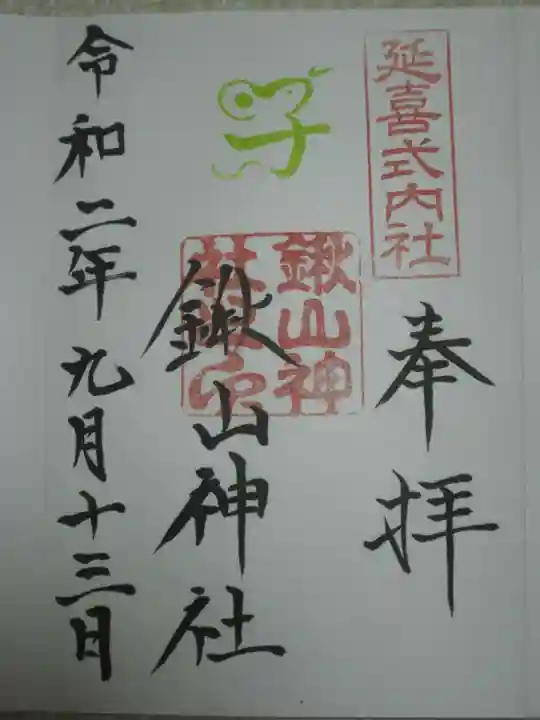 延喜式内社
奉拝
子
鍬山神
社
鍬山神社
令和二年九月十三日